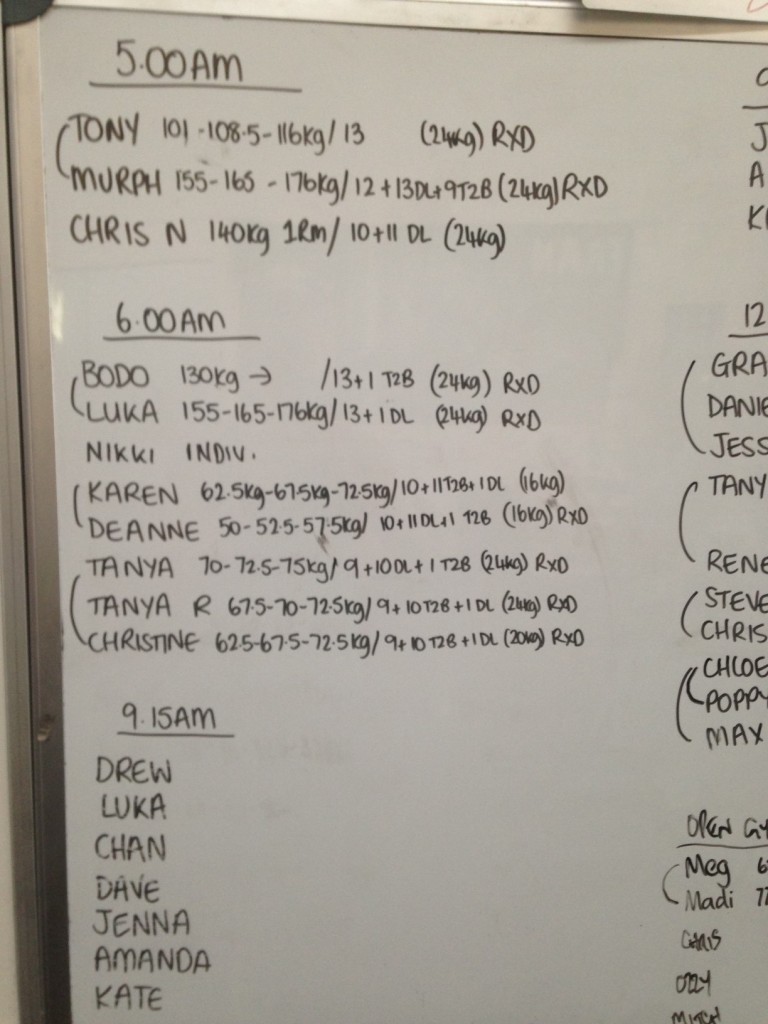 5.00AM
TONY 101-108.5-116kg/13 (24kg) RXD
MURPH 155-165-176kg/12+13DL+9T2B (24kg) RXD
CHRIS N 140kg 1Rm/10+11 DL (24kg)
6.00AM
BODO 130kg → /13+1 T2B (24kg) RXD
LUKA 155-165-176kg/13+1DL (24kg) RXD
NIKKI INDIV.
KAREN 62.5kg-67.5kg-72.5kg/10+11T2B+1DL (16kg)
DEANNE 50-52.5-57.5kg/ 10+11DL+1 T2B (16kg) RXD
TANYA 70-72.5-75kg/9+10DL+1T2B (24kg) RXD
TANYA R 67.5-70-72.5kg/9+10T2B+1DL (24kg) RXD
CHRISTINE 62.5-67.5-72.5kg/9+10T2B+1DL (20kg) RXD
9.15AM
DREW
LUKA
CHAN
DAVE
JENNA
AMANDA
KATE
J
A
K
12
GRA
DANIE
JESS
TANY
RENE
STEVE
CHRIS
CHLOE
POPPY
MAX
OPEN GY
Meg 6
Madi 77
CHRIS
OZZY